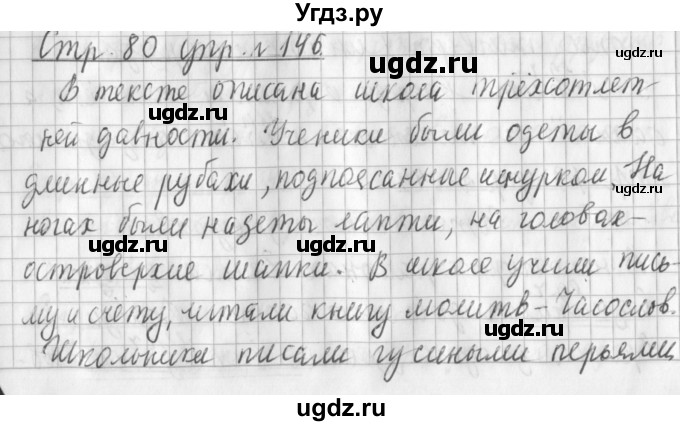 Угдз.ру
Стр. 80 упр. № 146
ugdz.ru
ugdz.ru
В тексте описана школа трёхсотлет-
ugdz.ru
ugdz.ru
ней давности. Ученики были одеты в
длинные рубахи, подпоясанные шнурком. На
ugdz.ru
ногах были надеты лапти, на головах-
ugdz.ru
ugdz.ru
островерхие шапки. В школе учили пись-
му и счёту, читали книгу молитв - Часослов.
ugdz.ru
ugdz.ru
Школьники писали гусиными перьями
ugdz.ru